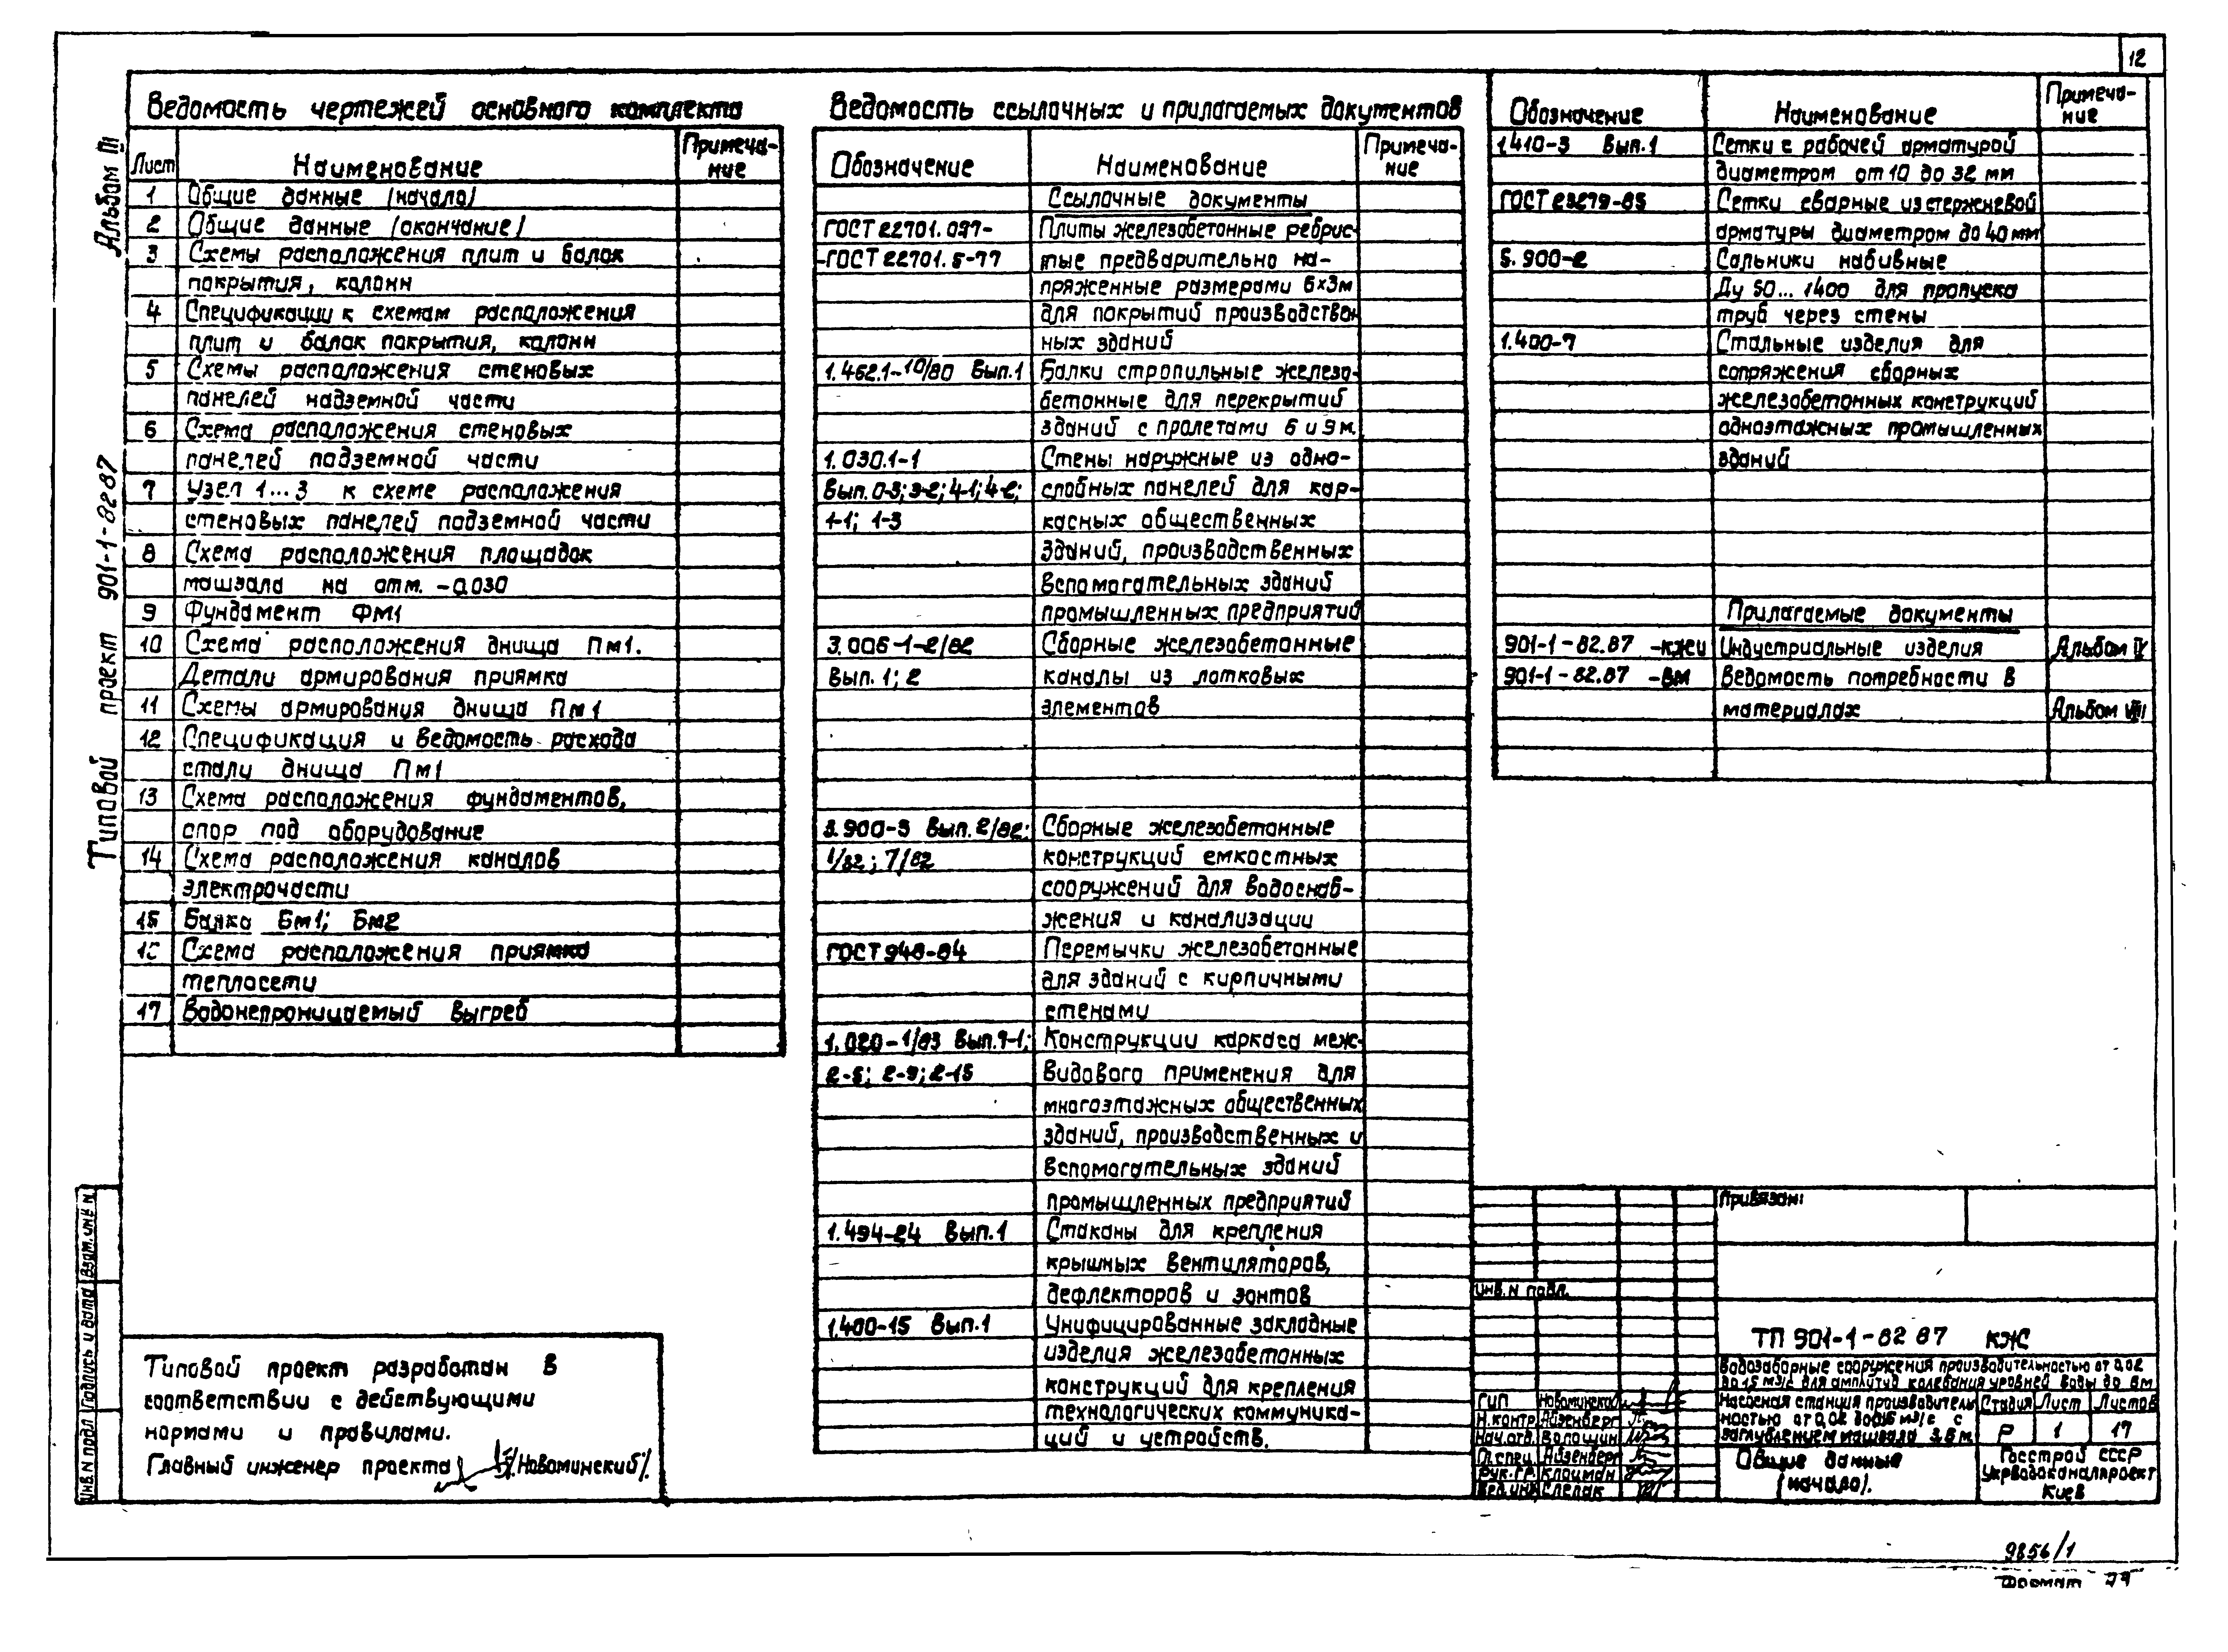 12
Альбом III
Типовой проект 901-1-82 87
Ведомость чертежей основного комплекта
Лист Наименование Примеча-
ние
1 Общие данные (начало)
2 Общие данные (окончание)
3 Схемы расположения плит и балок
покрытия, колонн
4 Спецификации к схемам расположения
плит и балок покрытия, колонн
5 Схемы расположения стеновых
панелей надземной части
6 Схема расположения стеновых
панелей подземной части
7 Узел 1...3 к схеме расположения
стеновых панелей подземной части
8 Схема расположения площадок
машзала на отм. -0.030
9 Фундамент ФМ1
10 Схема расположения днища Пм1.
Детали армирования приямка
11 Схемы армирования днища Пм1
12 Спецификация и ведомость расхода
стали днища Пм1
13 Схема расположения фундаментов,
опор под оборудование
14 Схема расположения каналов
электрочасти
15 Балка Бм1; Бм2
16 Схема расположения приямка
теплосети
17 Водонепроницаемый выгреб
Ведомость ссылочных и прилагаемых документов
Обозначение Наименование Примеча-
ние
Ссылочные документы
ГОСТ 22701.0-77- Плиты железобетонные ребрис-
-ГОСТ 22701.5-77 тые предварительно на-
пряженные размерами 6х3м
для покрытий производствен
ных зданий
1.462.1-10/80 Вып.1 Балки стропильные железо-
бетонные для перекрытий
зданий с пролетами 6 и 9м.
1.030.1-1 Стены наружные из одно-
Вып. 0-3; 3-2; 4-1; 4-2; слойных панелей для кар-
1-1; 1-3 касных общественных
зданий, производственных
вспомогательных зданий
промышленных предприятий
3.006-1-2/82 Сборные железобетонные
Вып. 1; 2 каналы из лотковых
элементов
3.900-3 Вып. 2/82; Сборные железобетонные
1/82; 7/82 конструкций емкостных
сооружений для водоснаб-
жения и канализации
ГОСТ 948-84 Перемычки железобетонные
для зданий с кирпичными
стенами
1.020-1/83 Вып.9-1; Конструкции каркаса меж-
2-5; 2-9; 2-15 видового применения для
многоэтажных общественных
зданий, производственных и
вспомогательных зданий
промышленных предприятий
1.494-24 Вып.1 Стаканы для крепления
крышных вентиляторов,
дефлекторов и зонтов
1.400-15 Вып.1 Унифицированные закладные
изделия железобетонных
конструкций для крепления
технологических коммуника-
ций и устройств.
Обозначение Наименование Примеча-
ние
1.410-3 Вып.1 Сетки с рабочей арматурой
диаметром от 10 до 32 мм
ГОСТ 23279-85 Сетки сварные из стержневой
арматуры диаметром до 40 мм
5.900-2 Сальники набивные
Ду 50...1400 для пропуска
труб через стены
1.400-7 Стальные изделия для
сопряжения сборных
железобетонных конструкций
одноэтажных промышленных
зданий
Прилагаемые документы
901-1-82.87 -КЖИ Индустриальные изделия Альбом IV
901-1-82.87 -ВМ Ведомость потребности в
материалах Альбом VIII
Типовой проект разработан в
соответствии с действующими
нормами и правилами.
Главный инженер проекта /Новоминский/.
Инв.N подл Подпись и дата Взам.инв N
Привязан:
Инв.N подл.
ТП 901-1-82 87 КЖ
Водозаборные сооружения производительностью от 0,02
до 15 м3/с для амплитуд колебания уровней воды до 6м
ГИП Новоминский
Н.контр. Айзенберг
Нач.отд. Волошин
Гл.спец. Айзенберг
Рук.гр. Клацман
Вед.инж Слепак
Насосная станция производитель
ностью от 0,02 до м3/с с
заглублением машзала м
Стадия Лист Листов
Р 1 17
Общие данные
(начало).
Госстрой СССР
Укрводоканалпроект
Киев
9856/1
Формат